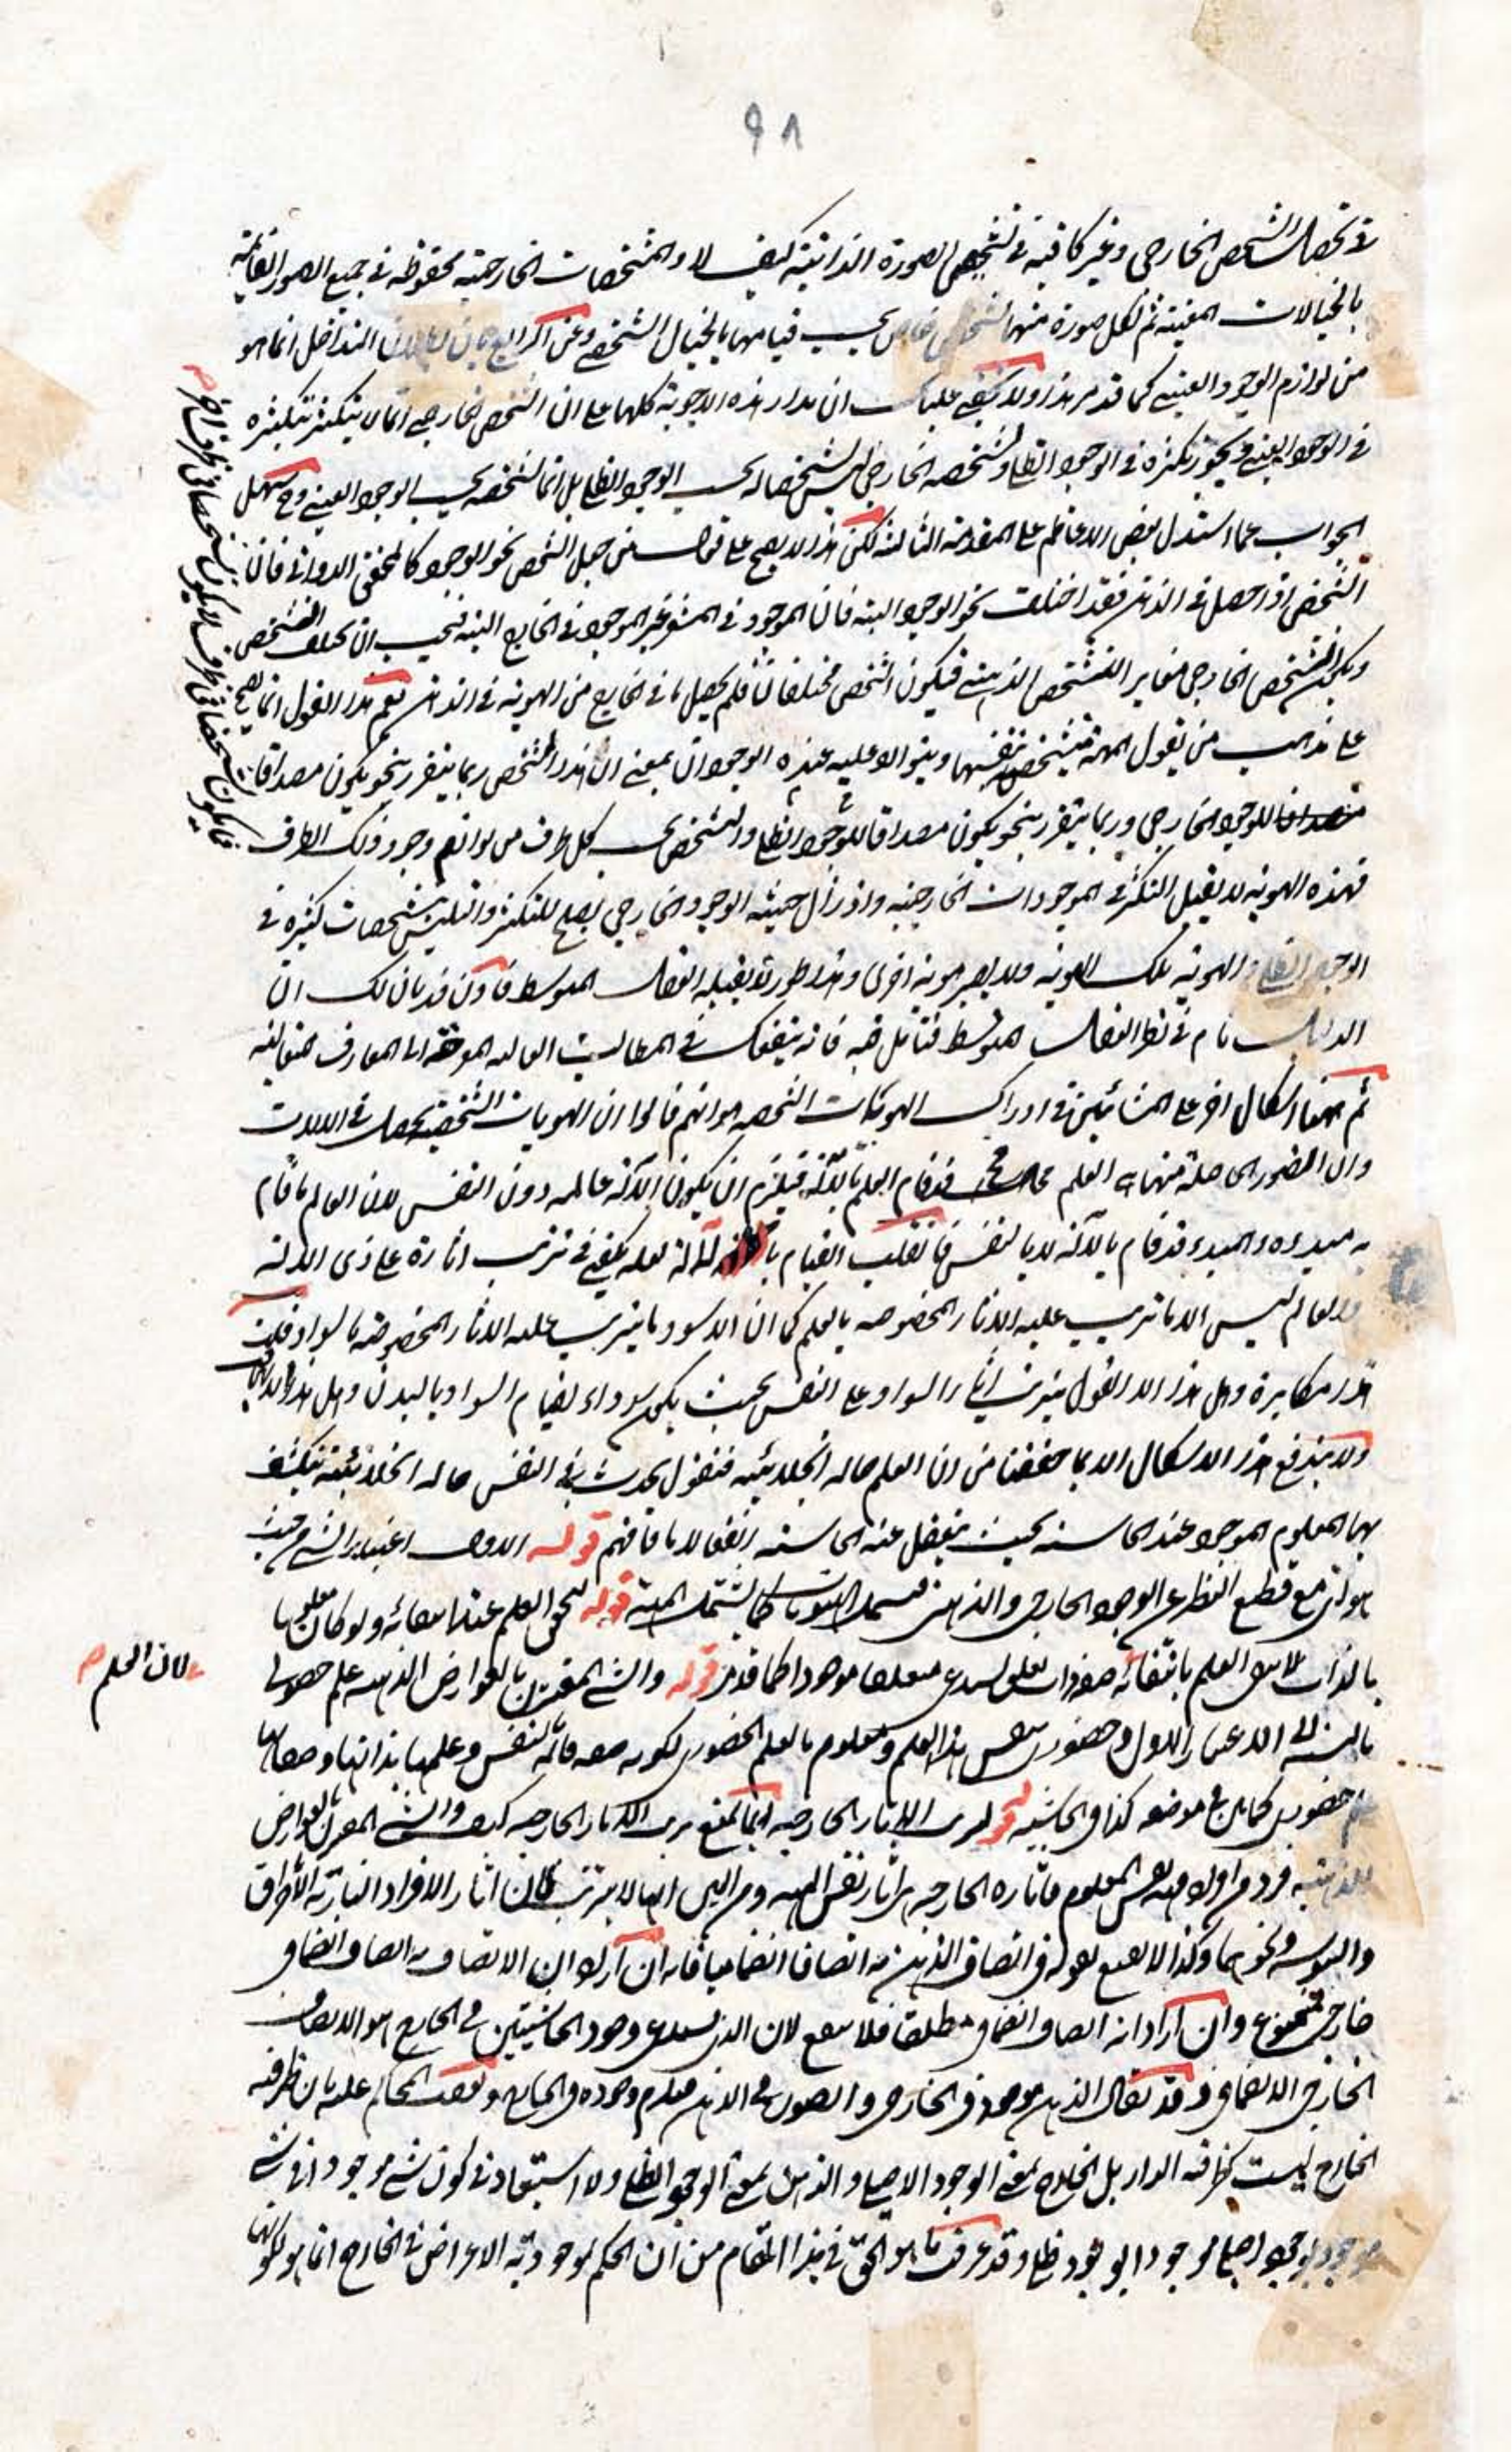 ٩٨
في تحصل الشخص الخارجي وغير كافية في تشخص الصورة الذهنية كيف لا والمشخصات الخارجية محفوظة في جميع الصور القائمة
بالخيالات المعينة ثم لكل صورة منها تشخص خاص بحسب قيامها بالخيال الشخصي وعن الرابع بان بطلان التداخل انما هو
من لوازم الوجود العيني كما قد مر هذا ولا يخفى عليك ان مدار هذه الاجوبة كلها على ان الشخص الخارجي انما لا يتكثر بتكثره
في الوجود العيني ويجوز تكثره في الوجود الظلي وتشخصه الخارجي ليس تشخصا له بحسب الوجود الظلي بل انما تشخصه بحسب الوجود العيني وح يسهل
الجواب عما استدل بعض الاعاظم على المقدمة الثالثة لكن هذا لا يصح على قول من جعل الشخص نحو الوجود كالمحقق الدواني فان
الشخص اذا حصل في الذهن فقد اختلف نحو الوجود البتة فان الموجود في المشعر غير الموجود في الخارج البتة فيجب ان يختلف التشخص
ويكون التشخص الخارجي مغاير التشخص الذهني فيكون الشخص مختلفا فلم يحصل ما في الخارج من الهوية في الذهن نعم هذا القول انما يصح
على مذهب من يقول المهية متشخصة بنفسها ويتوالا عليه عنده الوجودان بمعنى ان هذا الشخص ربما يتقرر بنحو يكون مصداقا
للوجود الخارجي وربما يتقرر بنحو يكون مصداقا للوجود الظلي والتشخص بحسب كل ظرف من لوازم وجود ذلك الظرف
فهذه الهوية لا يقبل التكثر في الموجودات الخارجية واذا زال حيثية الوجود الخارجي يصلح للتكثر والتلبس بتشخصات كثيرة في
الوجود الظلي والهوية تلك الهوية ولا يصير هوية اخرى وهذا طور لا يقبله العقل المتوسط فاذن قد بان لك ان
الدليل تام في نظر العقل المتوسط فتامل فيه فانه ينفعك في المطالب العالية
ثم ههنا اشكال اخر على المشائين في ادراك الهويات الشخصية هو انهم قالوا ان الهويات الشخصية يحصل في الالات
وان الصور الحاصلة منها هي العلم فح قد قام العلم بالآلة فيلزم ان يكون الآلة عالمة دون النفس لان العالم ما قام
به مبدءه والمبدء قد قام بالآلة لا بالنفس فان قلت القيام بالآلة لعله يكفي في ترتب اثاره على ذي الآلة
والعالم ليس الا ما ترتب عليه الاثار المخصوصة بالعلم كما ان الاسود ما يترتب عليه الاثار المخصوصة بالسواد قلت
هذا مكابرة وهل هذا الا القول بترتب اثار السواد على النفس بحيث يكون سوداء لقيام السواد بالبدن وهل هذا الا
ولا يندفع هذا الاشكال الا بما حققنا من ان العلم حالة انجلائية فنقول يحدث في النفس حالة انجلائية ينكشف
بها المعلوم الموجود عند الحاسة بحيث ينفعل عنه الحاسة انفعالا ما فافهم قوله الاول اعتبار الشيء من حيث
هو اي مع قطع النظر عن الوجود الخارجي والذهني قوله لتحقق العلم عند انتفائه ولو كان معلوما
بالذات لانتفى العلم بانتفائه كما قد مر قوله والشيء المقترن بالعوارض الذهنية علم حصولي
بالنسبة الى الاعتبار الاول وحضوري بنفس هذا العلم ومعلوم بالعلم الحضوري لكونه صفة قائمة بالنفس وعلمها بذاتها وصفاتها
علم حضوري كما بين في موضعه كذا في الحاشية قوله لترتب الاثار الخارجية انما يمنع ترتب الاثار الخارجية كيف والشيء المقترن بالعوارض
الذهنية فاثاره الخارجية هي اثار نفس المهية ومن البين انها لا يترتب فان اثار الافراد النارية الاحراق
واليبوسة ونحوهما وكذا لا يصح قوله في اتصاف الذهن به اتصافا انضماميا فانه ان اراد ان الاتصاف به اتصاف انضمامي
خارجي فممنوع وان اراد انه اتصاف انضمامي مطلقا فلا ينفع لان الذي يستدعي وجود الحاشيتين في الخارج هو الاتصاف
الخارجي الانضمامي وقد يقال الذهن موجود في الخارج والصورة في الذهن فيلزم وجوده في الخارج
الخارج ليست كظرفية الدار بل الخارج بمعنى الوجود الاصلي والذهن بمعنى الوجود الظلي ولا استبعاد في كون شيء موجود في شيء
موجود بوجود اصلي موجودا بوجود ظلي وقد عرفت ما هو الحق في هذا المقام من ان الحكم لوجودية الاعراض في الخارج انما هو لكونها
فيكون تشخصا في ظرف لا يكون تشخصا في ظرف اخر
لان العلم